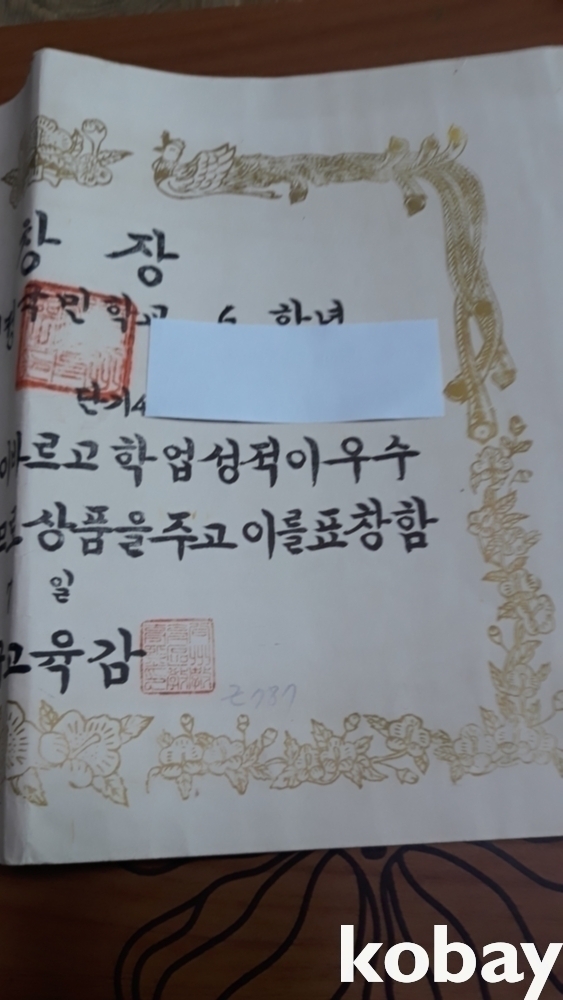 창 장
국민학교 6 학년
단기4
바르고 학업성적이우수
므로 상품을주고이를표창함
일
교육감
Z737
kobay